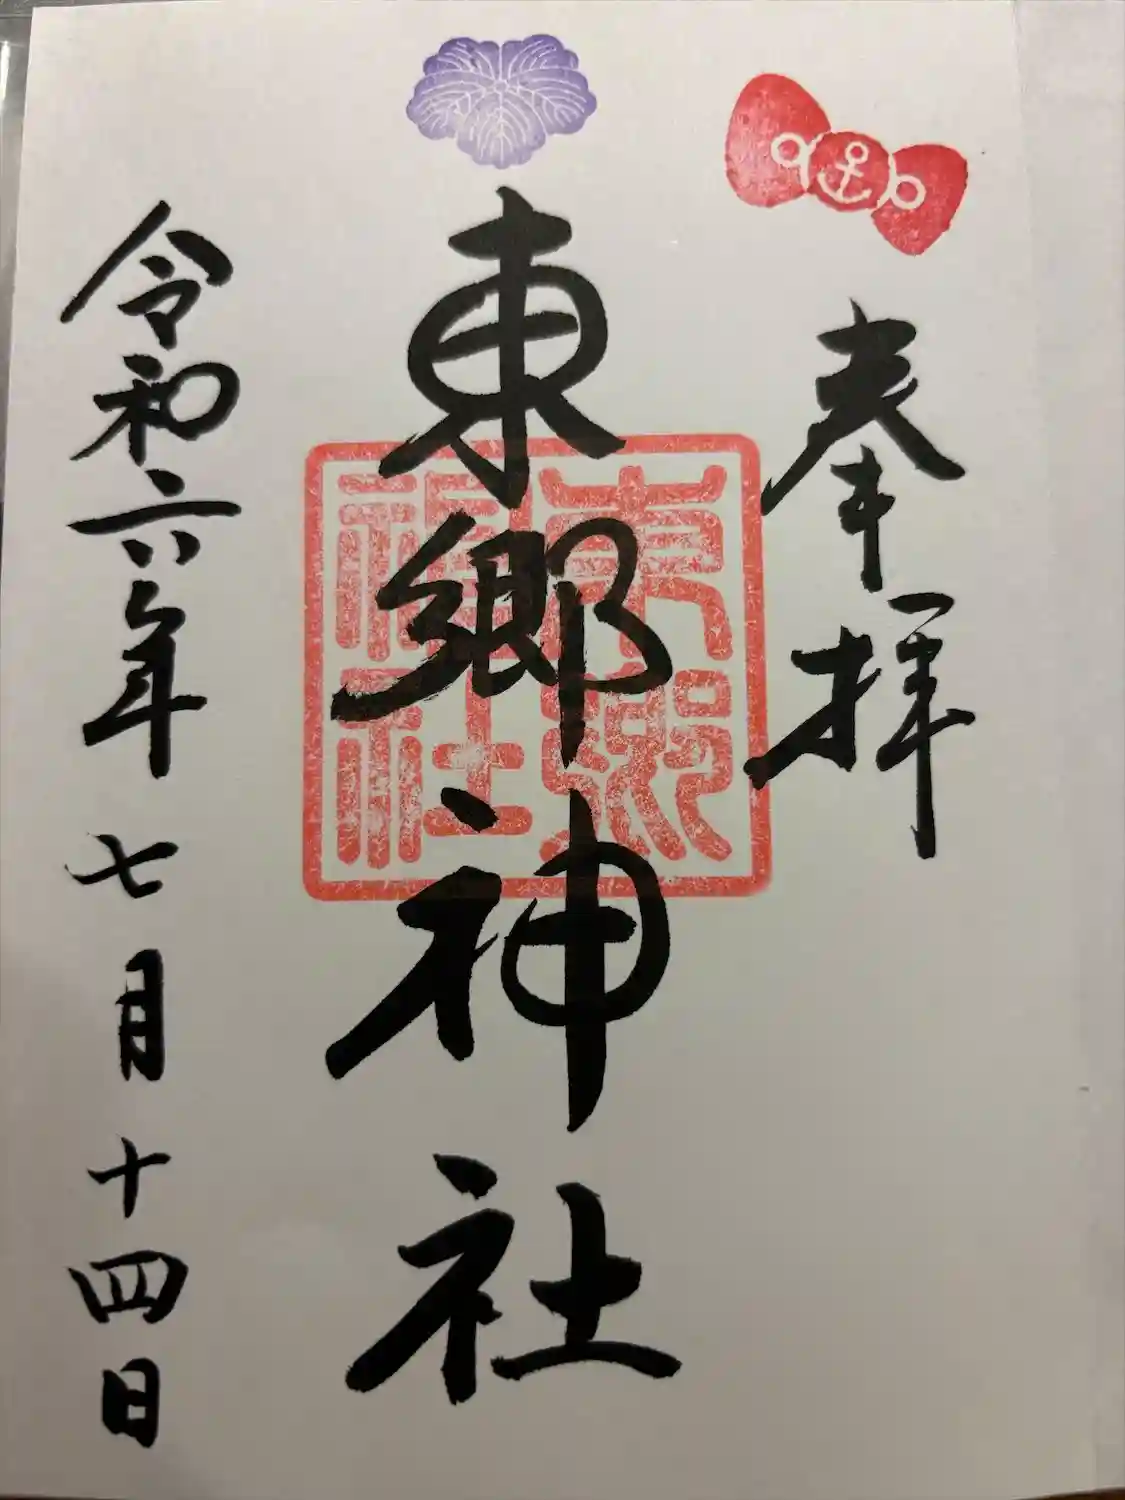 奉拝
東郷神社
東郷
神社
令和六年七月十四日